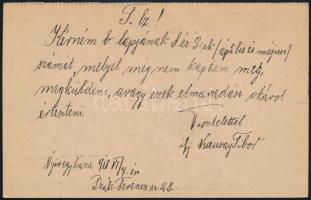 T. Cz!
Kérném b. lapjának 8 és 9-ik /április és május/
számát, melyet még nem kaptam meg,
megküldeni, avagy ezek elmaradási okáról
értesíteni.
Tisztelettel
ifj Krausay Tibor
Nyíregyháza 918 VI/4.én
Deák Ferenc u 28.